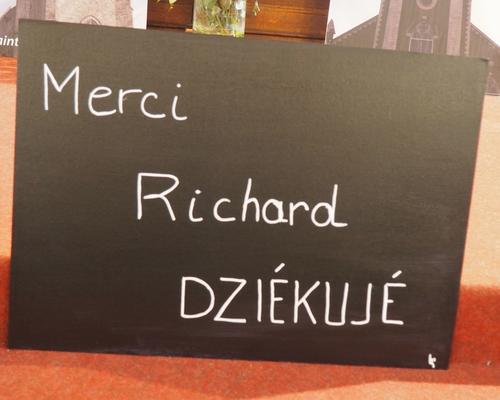 aint
Merci
Richard
DZIÉKUJÉ